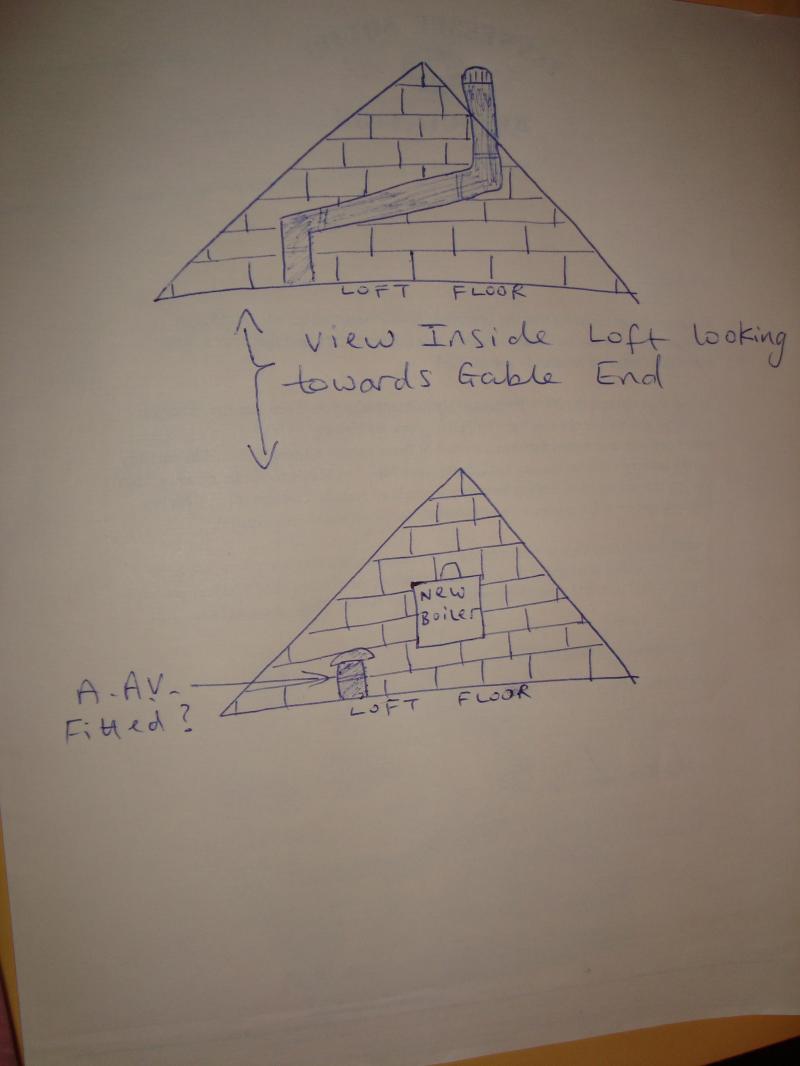 LOFT FLOOR
View Inside Loft looking
towards Gable End
New
Boiler
A.AV.
Fitted?
LOFT FLOOR